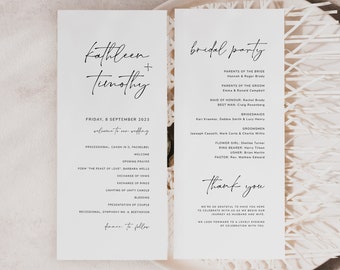 Kathleen
+
Timothy
FRIDAY, 8 SEPTEMBER 2023
welcome to our wedding
PROCESSIONAL, CANON IN D, PACHELBEL
WELCOME
OPENING PRAYER
FORM 'THE FEAST OF LOVE', BARBARA CARTLAND
EXCHANGE OF VOWS
EXCHANGE OF RINGS
LIGHTING OF UNITY CANDLE
BLESSING
PRESENTATION OF COUPLE
RECESSIONAL, SYMPHONY NO. 9, BEETHOVEN
dinner to follow
bridal party
PARENTS OF THE BRIDE
Hannah & Roger Brady
PARENTS OF THE GROOM
Emma & Ronald Campbell
MAID OF HONOUR: Rachel Brady
BEST MAN: Craig Rosenburg
BRIDESMAIDS
GROOMSMEN
FLOWER GIRL: Shellee Turner
RING BEARER: Harry Tilson
USHER: Brian Morris
PASTOR: Rev. Matteo Edward
Thank you
WE ARE SO GRATEFUL TO HAVE YOU HERE
TO CELEBRATE WITH US AS WE BEGIN OUR
JOURNEY AS HUSBAND AND WIFE.
WE LOOK FORWARD TO A LOVELY EVENING
OF CELEBRATION WITH YOU.